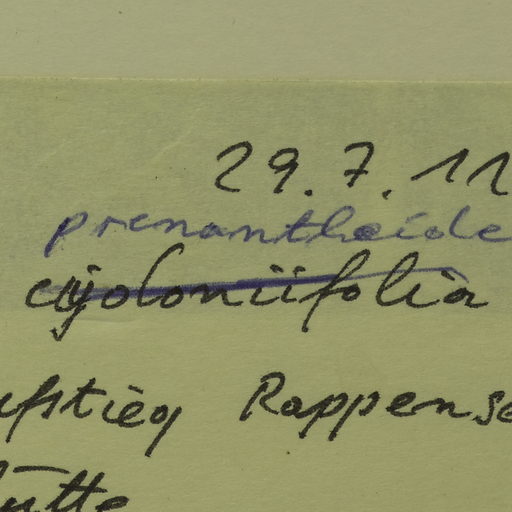 29.7.11
prenantheide
cydoniifolia
ufstieg Rappense
ütte